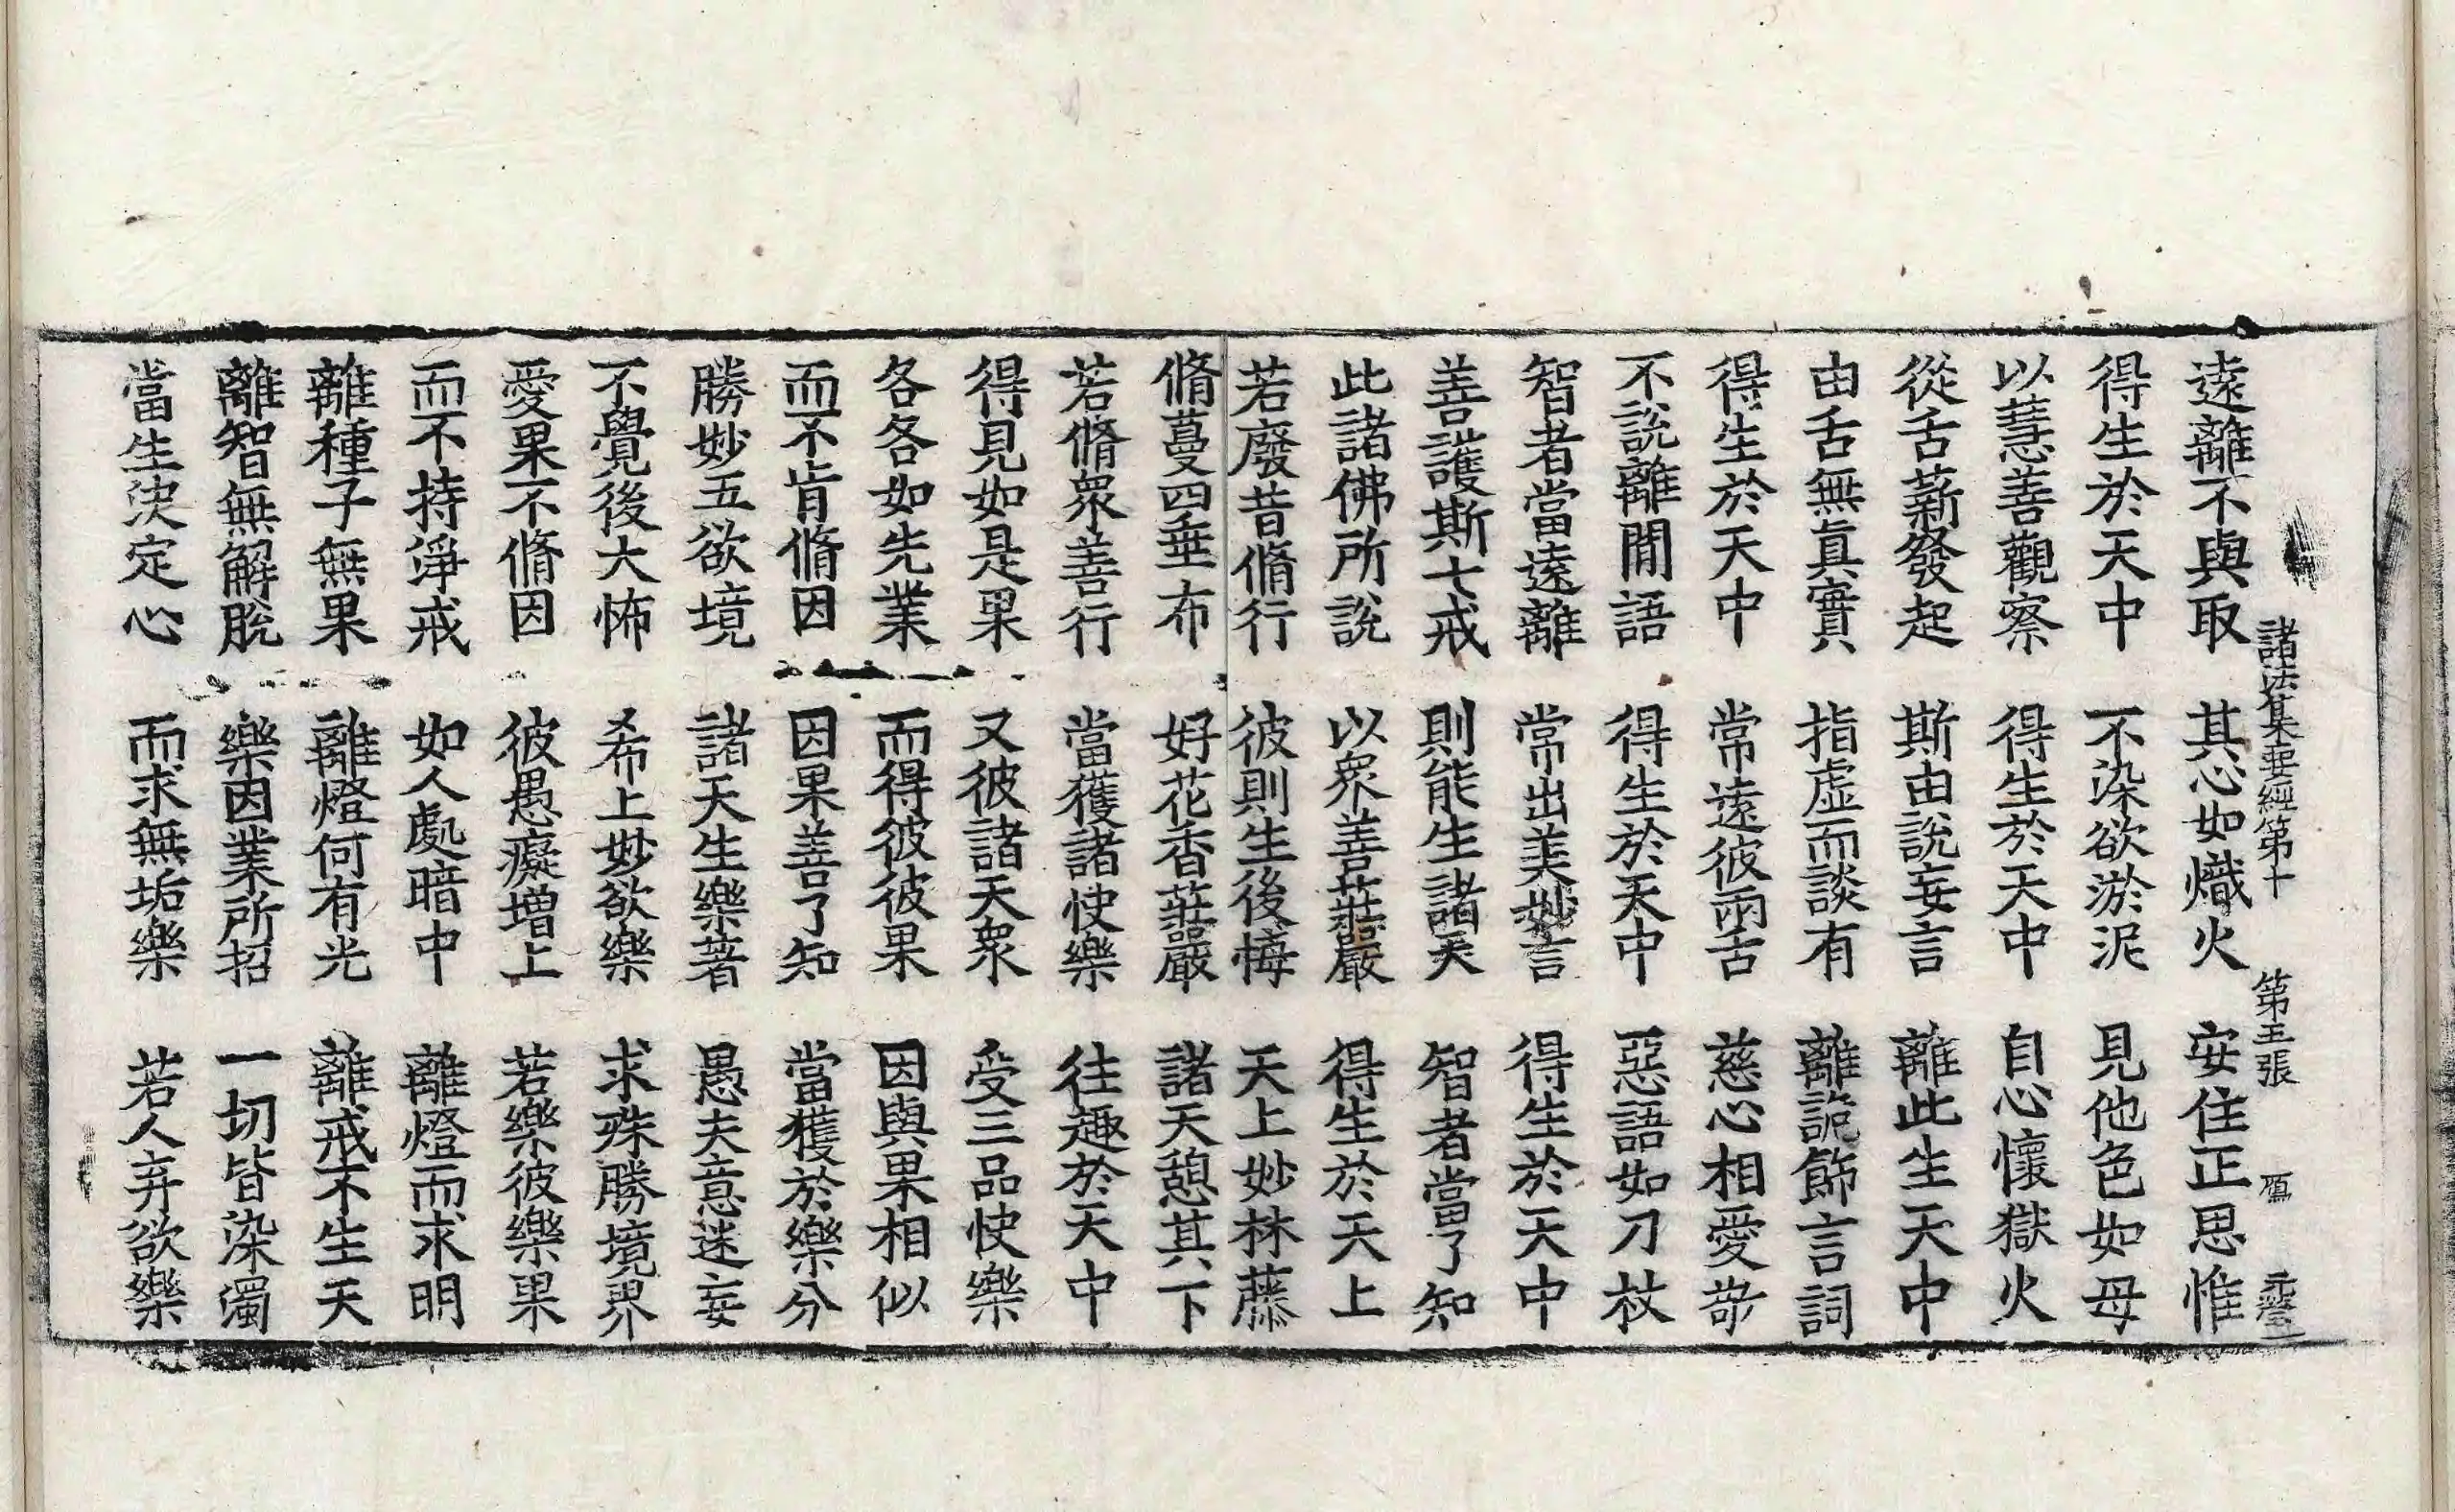 諸法集要經第十　第五張　鴈
遠離不與取　其心如熾火　安住正思惟
得生於天中　不染欲淤泥　見他色如母
以慧善觀察　得生於天中　自心懷獄火
從舌薪發起　斯由說妄言　離此生天中
由舌無眞實　指虛而談有　離詭飾言詞
得生於天中　常遠彼兩舌　慈心相愛
不說離閒語　得生於天中　惡語如刀杖
智者當遠離　常出美妙言　得生於天中
善護斯七戒　則能生諸天　智者當了知
此諸佛所說　以衆善莊嚴　得生於天上
若廢昔脩行　彼則生後悔　天上妙林藤
脩蔓四垂布　好花香莊嚴　諸天憩其下
若脩衆善行　當獲諸快樂　往趣於天中
得見如是果　又彼諸天衆　受三品快樂
各各如先業　而得彼彼果　因與果相似
而不肯脩因　因果善了知　當獲於樂分
勝妙五欲境　諸天生樂著　愚夫意迷妄
不覺後大怖　希上妙欲樂　求殊勝境界
愛果不脩因　彼愚癡增上　若樂彼樂果
而不持淨戒　如人處暗中　離燈而求明
離種子無果　離燈何有光　離戒不生天
離智無解脫　樂因業所招　一切皆染濁
當生決定心　而求無垢樂　若人弃欲樂